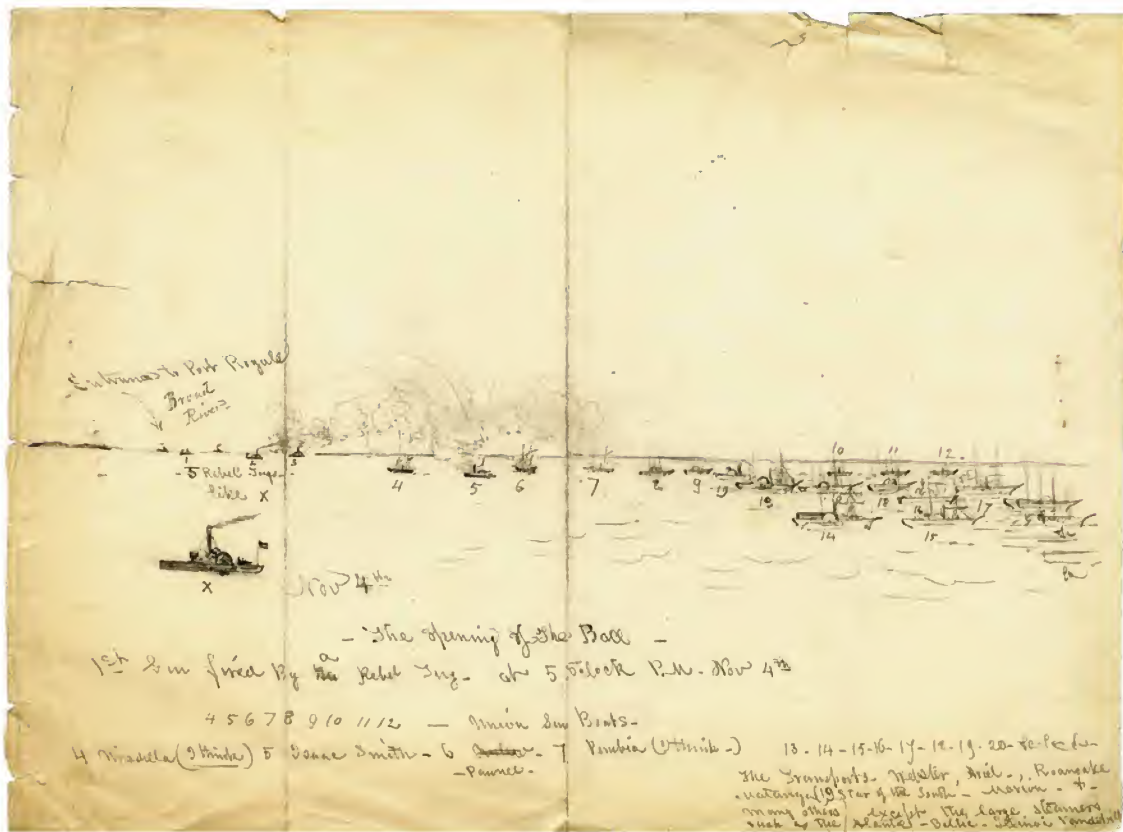 Entrance to Port Royale
Broad
River
1 2 3
5 Rebel Tugs
like x
4 5 6 7 8 9 19 10 11 12
18 16 17
14 15
&c
x
Nov 4th
- The opening of The Ball -
1st Gun fired By a Rebel Tug - at 5 O'clock P.M. Nov 4th
4 5 6 7 8 9 10 11 12 — Union Gun Boats -
4 (I think) 5 Isaac Smith - 6 - 7 Pembia (I think -) 13 - 14 - 15 - 16 - 17 - 18 - 19 - 20 - &c &c &c -
- Pawnee -
The Transports - Webster, Ariel -, Roanoake
- Matanza (19) Star of the South - Marion - & -
many others except the large steamers
such as the Atlantic - Baltic - Vanderbilt